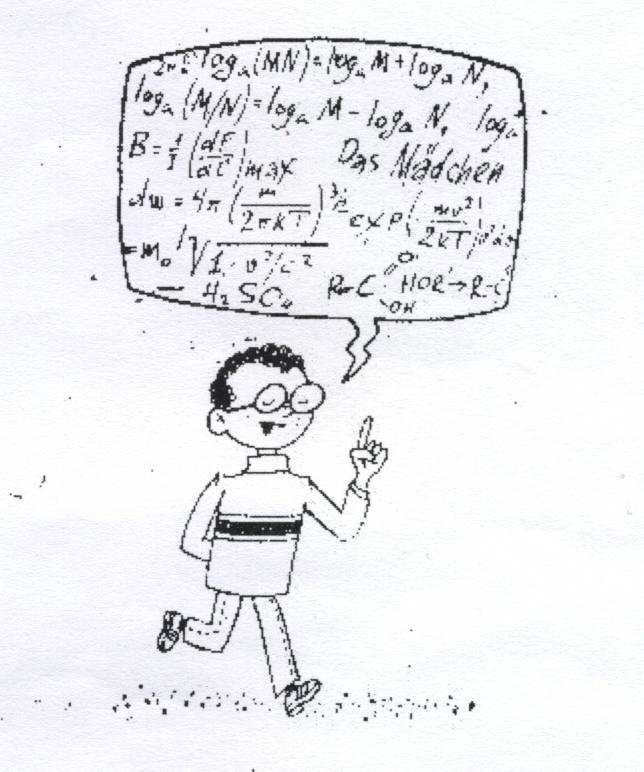 log_a(MN)=log_a M+log_a N,
log_a (M/N)=log_a M-log_a N, log_a
B = 1/I (dF/dl) max Das Mädchen
dw = 4π (m/2πkT)^3/2 exp (mv²/2kT)
= m₀ / √1. v²/c²
H₂SO₄ R-C O OH HOR'→R-C